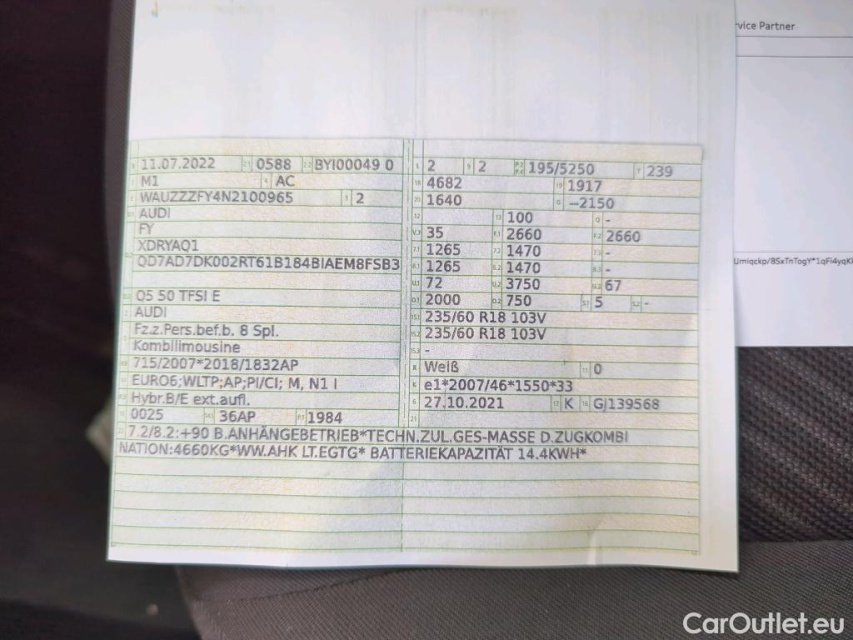 rvice Partner
11.07.2022 0588 BYI00049 0
M1 AC
WAUZZZFY4N2100965 2
AUDI
FY
XDRYAQ1
QD7AD7DK002RT61B184BIAEM8FSB3
Q5 50 TFSI E
AUDI
Fz.z.Pers.bef.b. 8 Spl.
Kombilimousine
715/2007*2018/1832AP
EURO6;WLTP;AP;PI/CI; M, N1 I
Hybr.B/E ext.aufl.
0025 36AP 1984
2 2 195/5250 239
4682 1917
1640 —2150
100 -
35 2660 2660
1265 1470 -
1265 1470 -
72 3750 67
2000 750 5 -
235/60 R18 103V
235/60 R18 103V
-
Weiß 0
e1*2007/46*1550*33
27.10.2021 K GJ139568
7.2/8.2:+90 B.ANHÄNGEBETRIEB*TECHN.ZUL.GES-MASSE D.ZUGKOMBI
NATION:4660KG*WW.AHK LT.EGTG* BATTERIEKAPAZITÄT 14.4KWH*
CarOutlet.eu